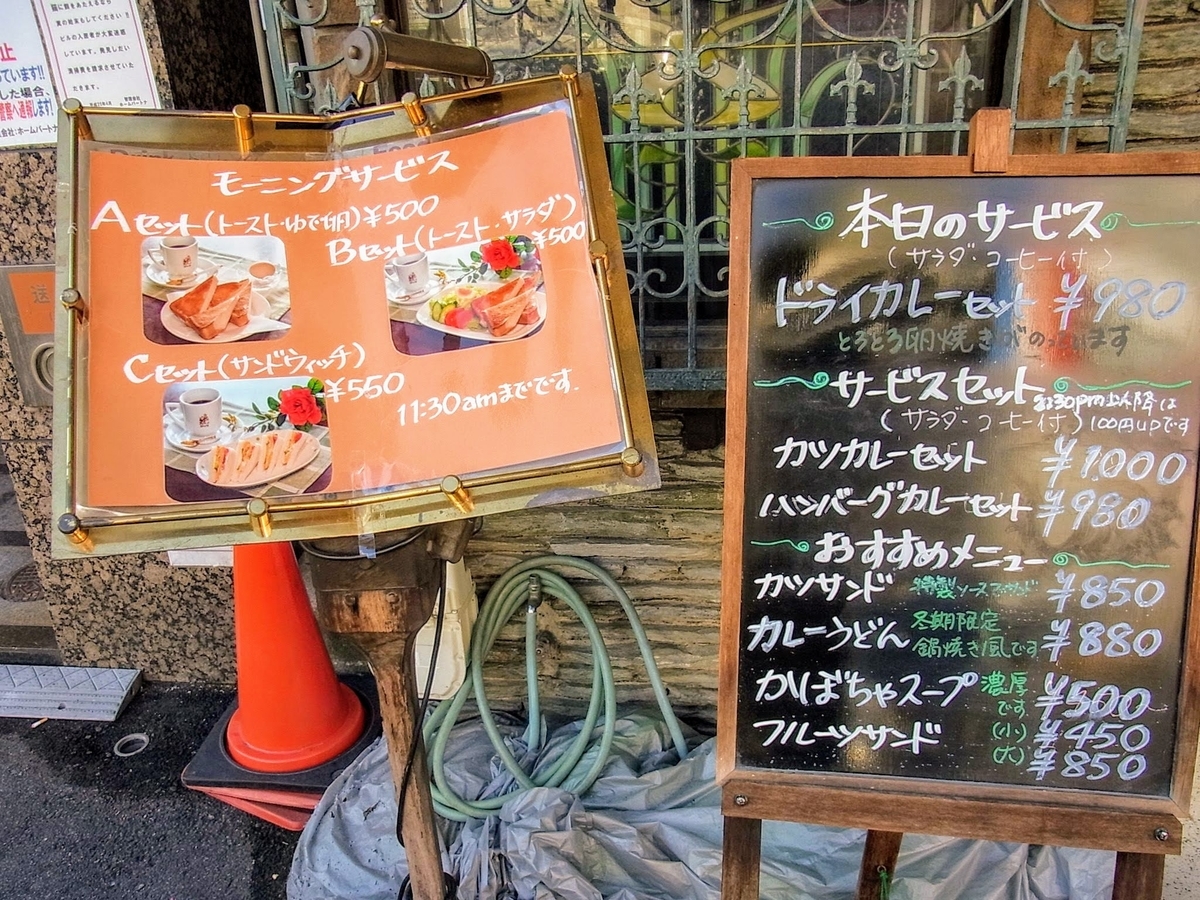 モーニングサービス
Aセット(トースト・ゆで卵)¥500
Bセット(トースト・サラダ)
¥500
Cセット(サンドウィッチ)
¥550
11:30amまでです.
本日のサービス
(サラダ・コーヒー付)
ドライカレーセット ¥980
とろとろ卵焼きがのってます
サービスセット
以降は
(サラダ・コーヒー付) 100円UPです
カツカレーセット ¥1000
ハンバーグカレーセット ¥980
おすすめメニュー
カツサンド 特製ソース ¥850
カレーうどん 冬期限定 鍋焼き風です ¥880
かぼちゃスープ 濃厚です ¥500
フルーツサンド (小) ¥450
(大) ¥850
止
っています!!
した場合、
警察へ通報します!
会社:ホームパートナ